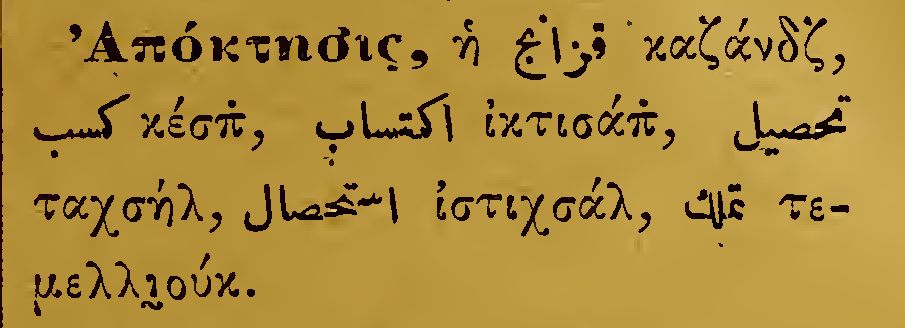 Ἀπόκτησις, ἡ قزانج καζάνδζ,
كسب κέσπ̇, اكتساب ἰκτισάπ̇, تحصيل
ταχσήλ, استحصال ἰστιχσάλ, تملك τε-
μελλι̰ούκ.